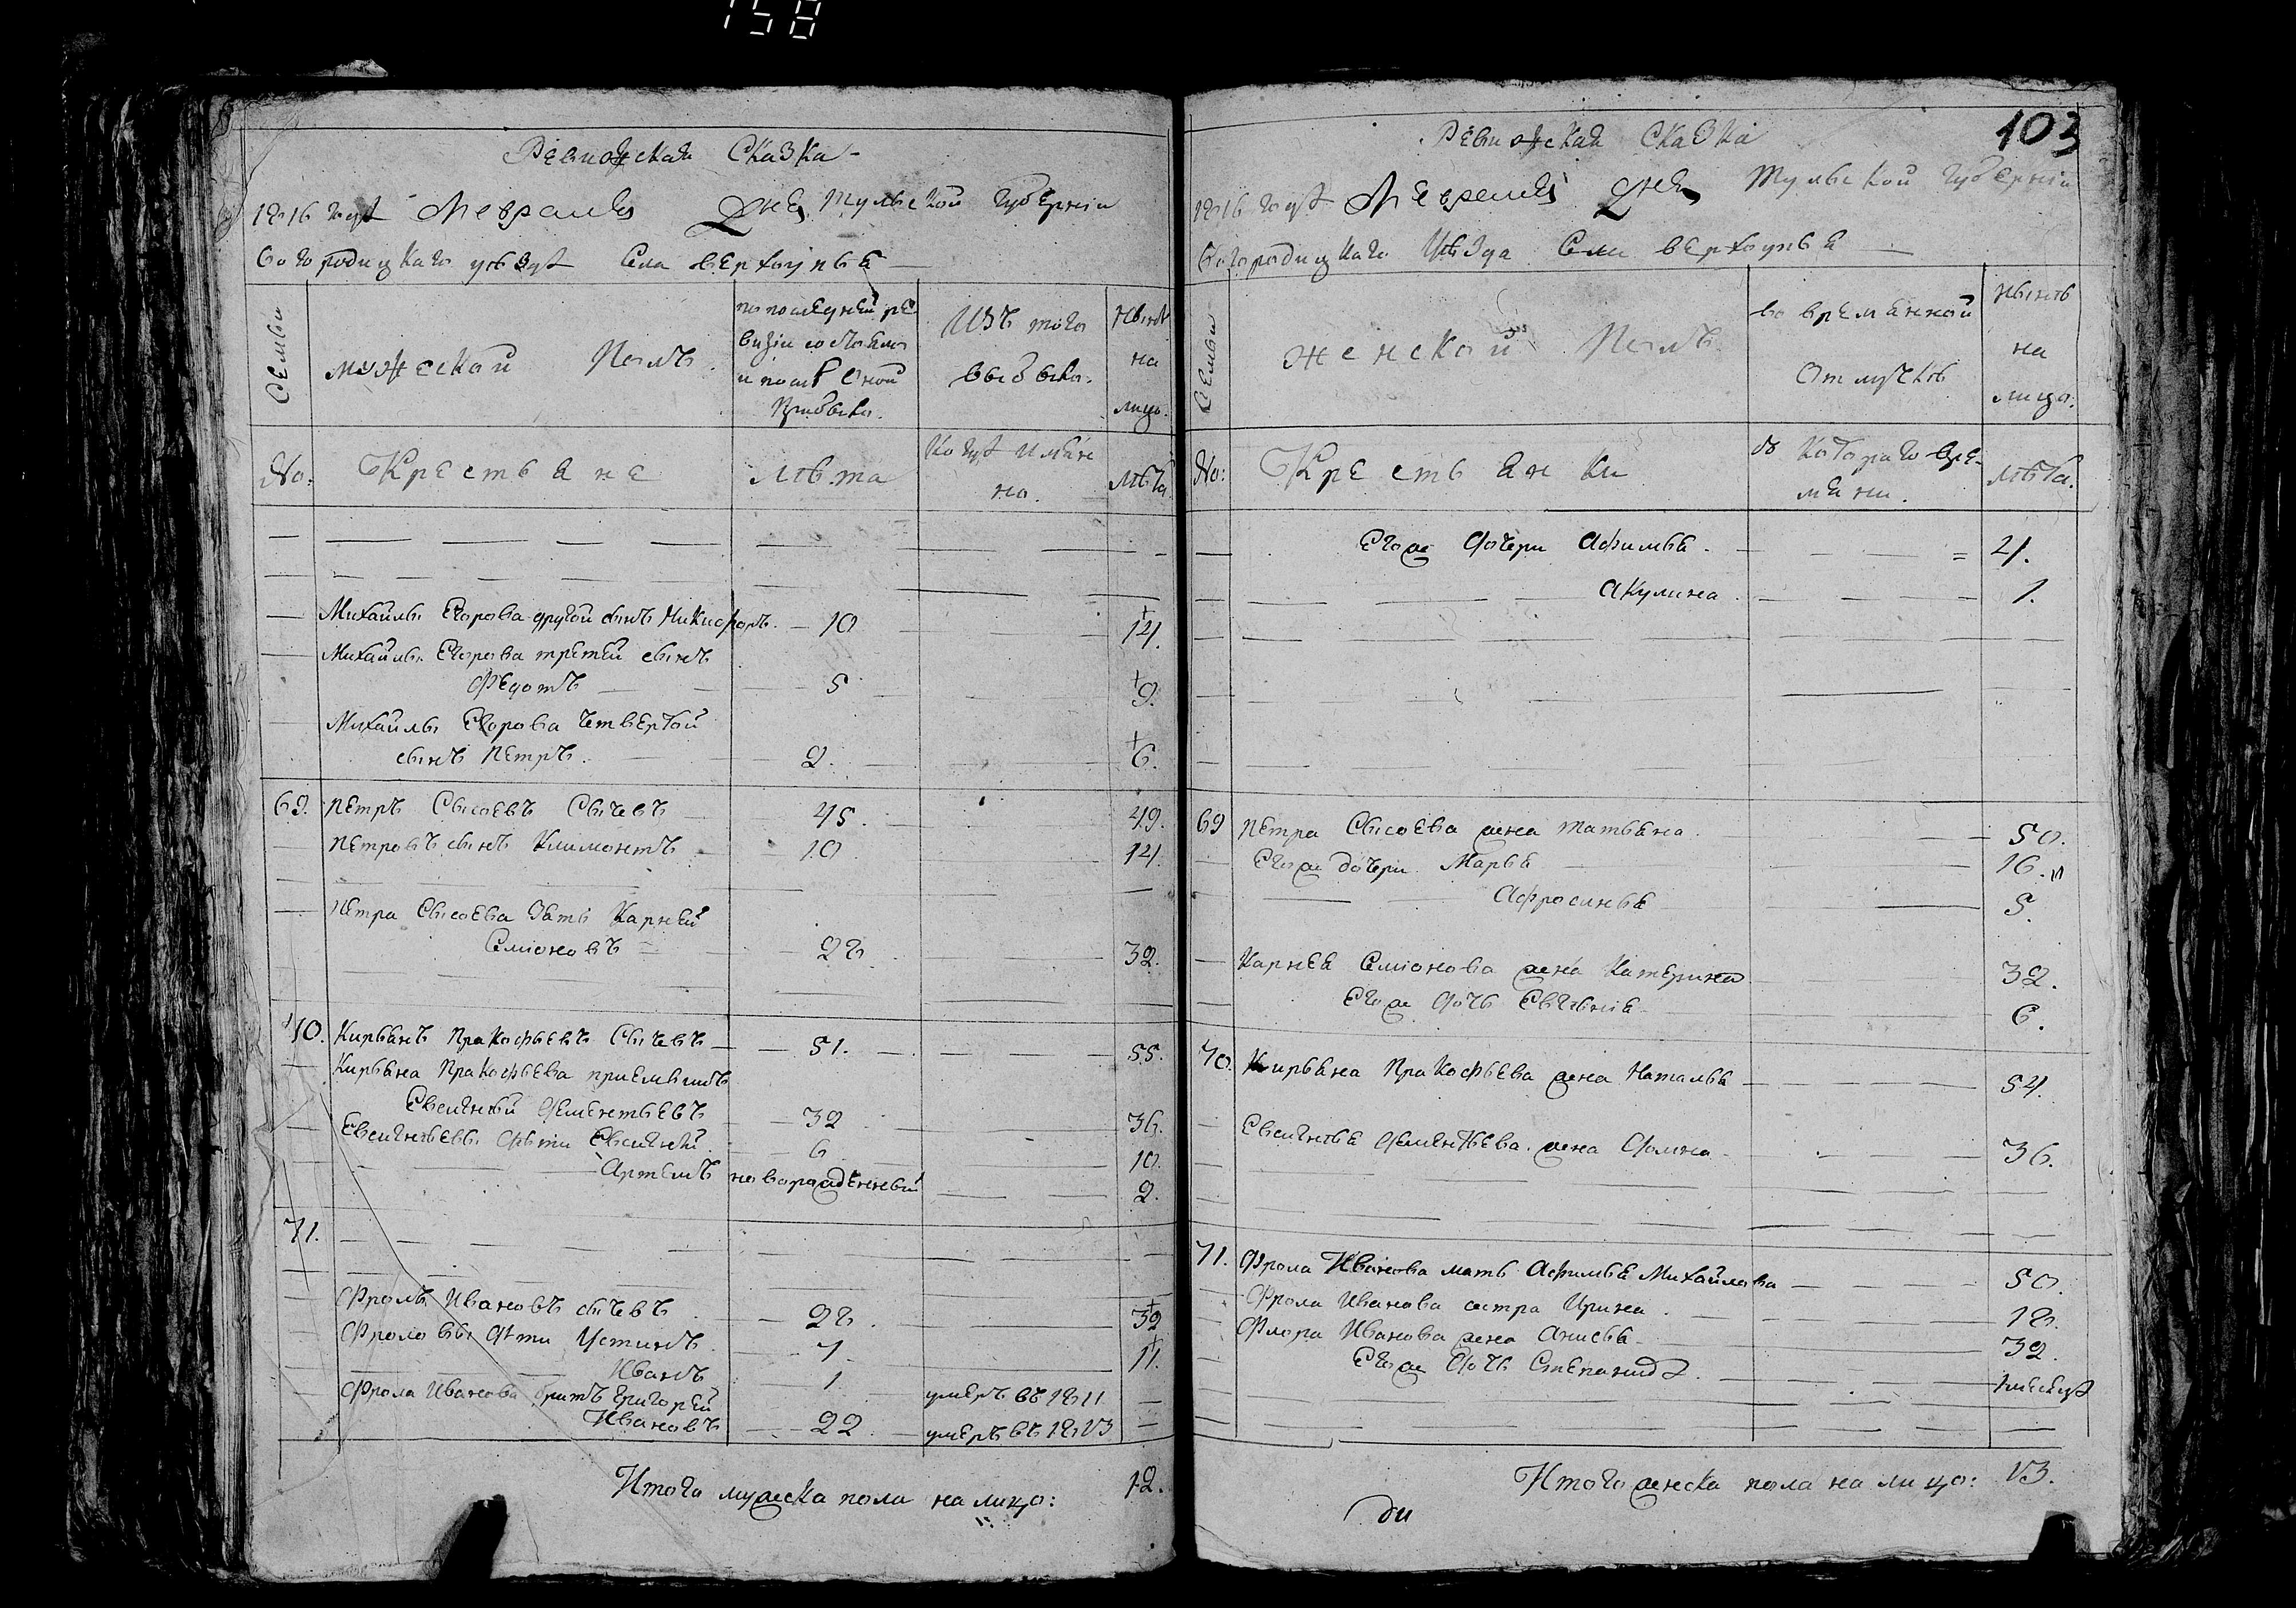 158
Ревижская Сказка
1816 году Февраля дня Тульской губернии
Богородицкаго уезду Села верхоупья
Семьи
мужеской Полъ
по последней ре
визии состояло
и после оной
Прибыло.
Изъ того
выбыло.
Ныне
на
лицо.
No:
Крестьяне
Лѣта
Когда имян
но.
Лѣта
Михайлы Егорова другой сынъ Никифоръ. 10 14.
Михайлы Егорова третей сынъ
Федотъ 5 9.
Михайлы Егорова четвертой
сынъ Петръ. 2. 6.
69. Петръ Сысоевъ Сычевъ 45. 49.
Петровъ сынъ Климонтъ 10. 14.
Петра Сысоева Зять Карней
Семіоновъ 28. 32.
70. Кирьянъ Пракофьевъ Сычевъ 51. 55.
Кирьяна Пракофьева приемышъ
Евсигней Дементьевъ 32 36.
Евсигнѣевы дѣти Евсигней. 6 10.
Артемъ новорожденный 2.
71.
Фролъ Ивановъ сычевъ 28. 32
Фроловы дѣти Устинъ. 7 11.
Иванъ 1 умеръ въ 1811
Фрола Иванова братъ Григорей
Ивановъ 22 умеръ въ 1813
Итого мужеска пола на лицо: 12.
103
Ревижская Сказка
1816 году Февраля дня Тульской губернии
Богородицкаго уѣзда Села верхоупья
Семьи
женской Полъ
во временной
отлучкѣ
Нынѣ
на
лицо.
No:
Крестьянки
съ котораго вре-
мяни.
Лѣта.
Егож дочери Афимья. 4.
Акулина. 1.
69 Петра Сысоева жена татьяна. 50.
Егож дочери Марья 16.
Афросинья 5.
Карнея Семіонова жена Катерина 32.
Егож дочь Евгѣния 6.
70. Кирьяна Пракофьева жена Наталья 54.
Евсигнѣя Дементьева жена Фомна 36.
71. Фрола Иванова мать Афимья Михайлова 50.
Фрола Иванова сестра Ирина. 18.
Флора Иванова жена Анисья 32.
Егож дочь Степанида.
Итого женска пола на лицо: 13.
ди